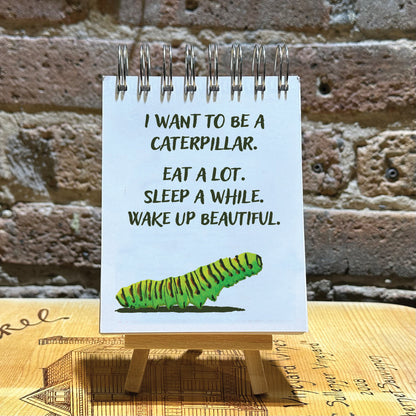 I WANT TO BE A
CATERPILLAR.
EAT A LOT.
SLEEP A WHILE.
WAKE UP BEAUTIFUL.